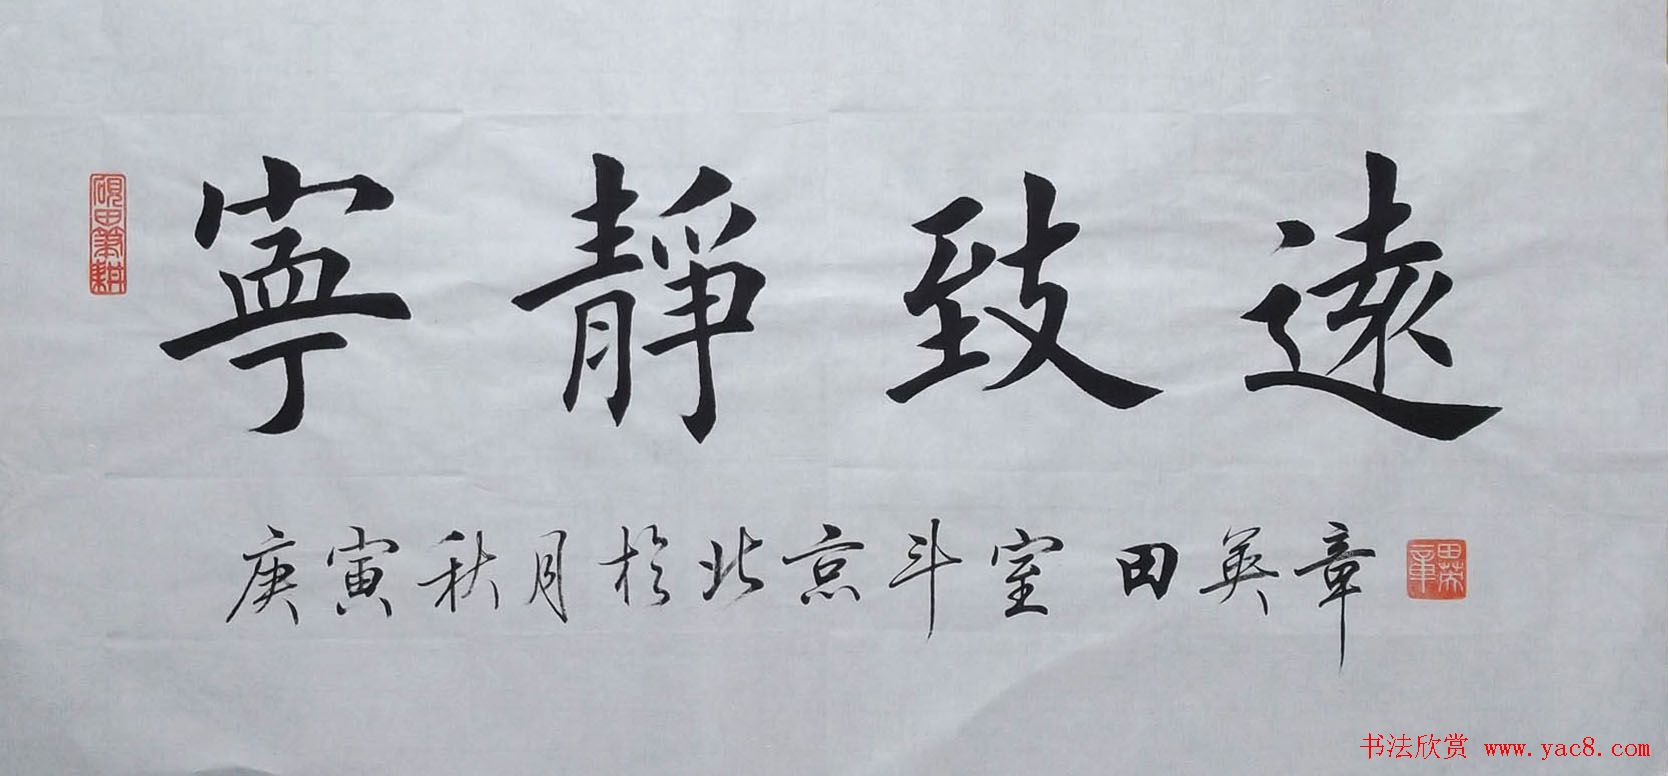 寧靜致遠
庚寅秋月於北京斗室 田英章
硯田筆耕
田英章
书法欣赏 www.yac8.com